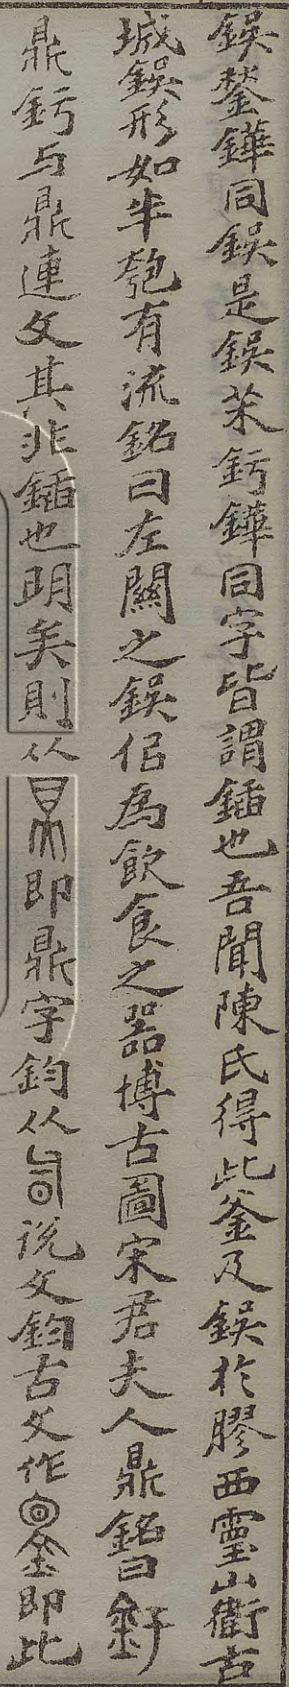 鋘䥝鏵同鋘是鋘茉釫鏵同字皆謂鍤也吾聞陳氏得此釜及鋘於膠西靈山衛古
城鋘形如半匏有流銘曰左關之鋘侣為飲食之器博古圖宋君夫人鼎銘曰釪
鼎釫与鼎連文其非鍤也明矣則从即鼎字鈞从說文鈞古文作即此